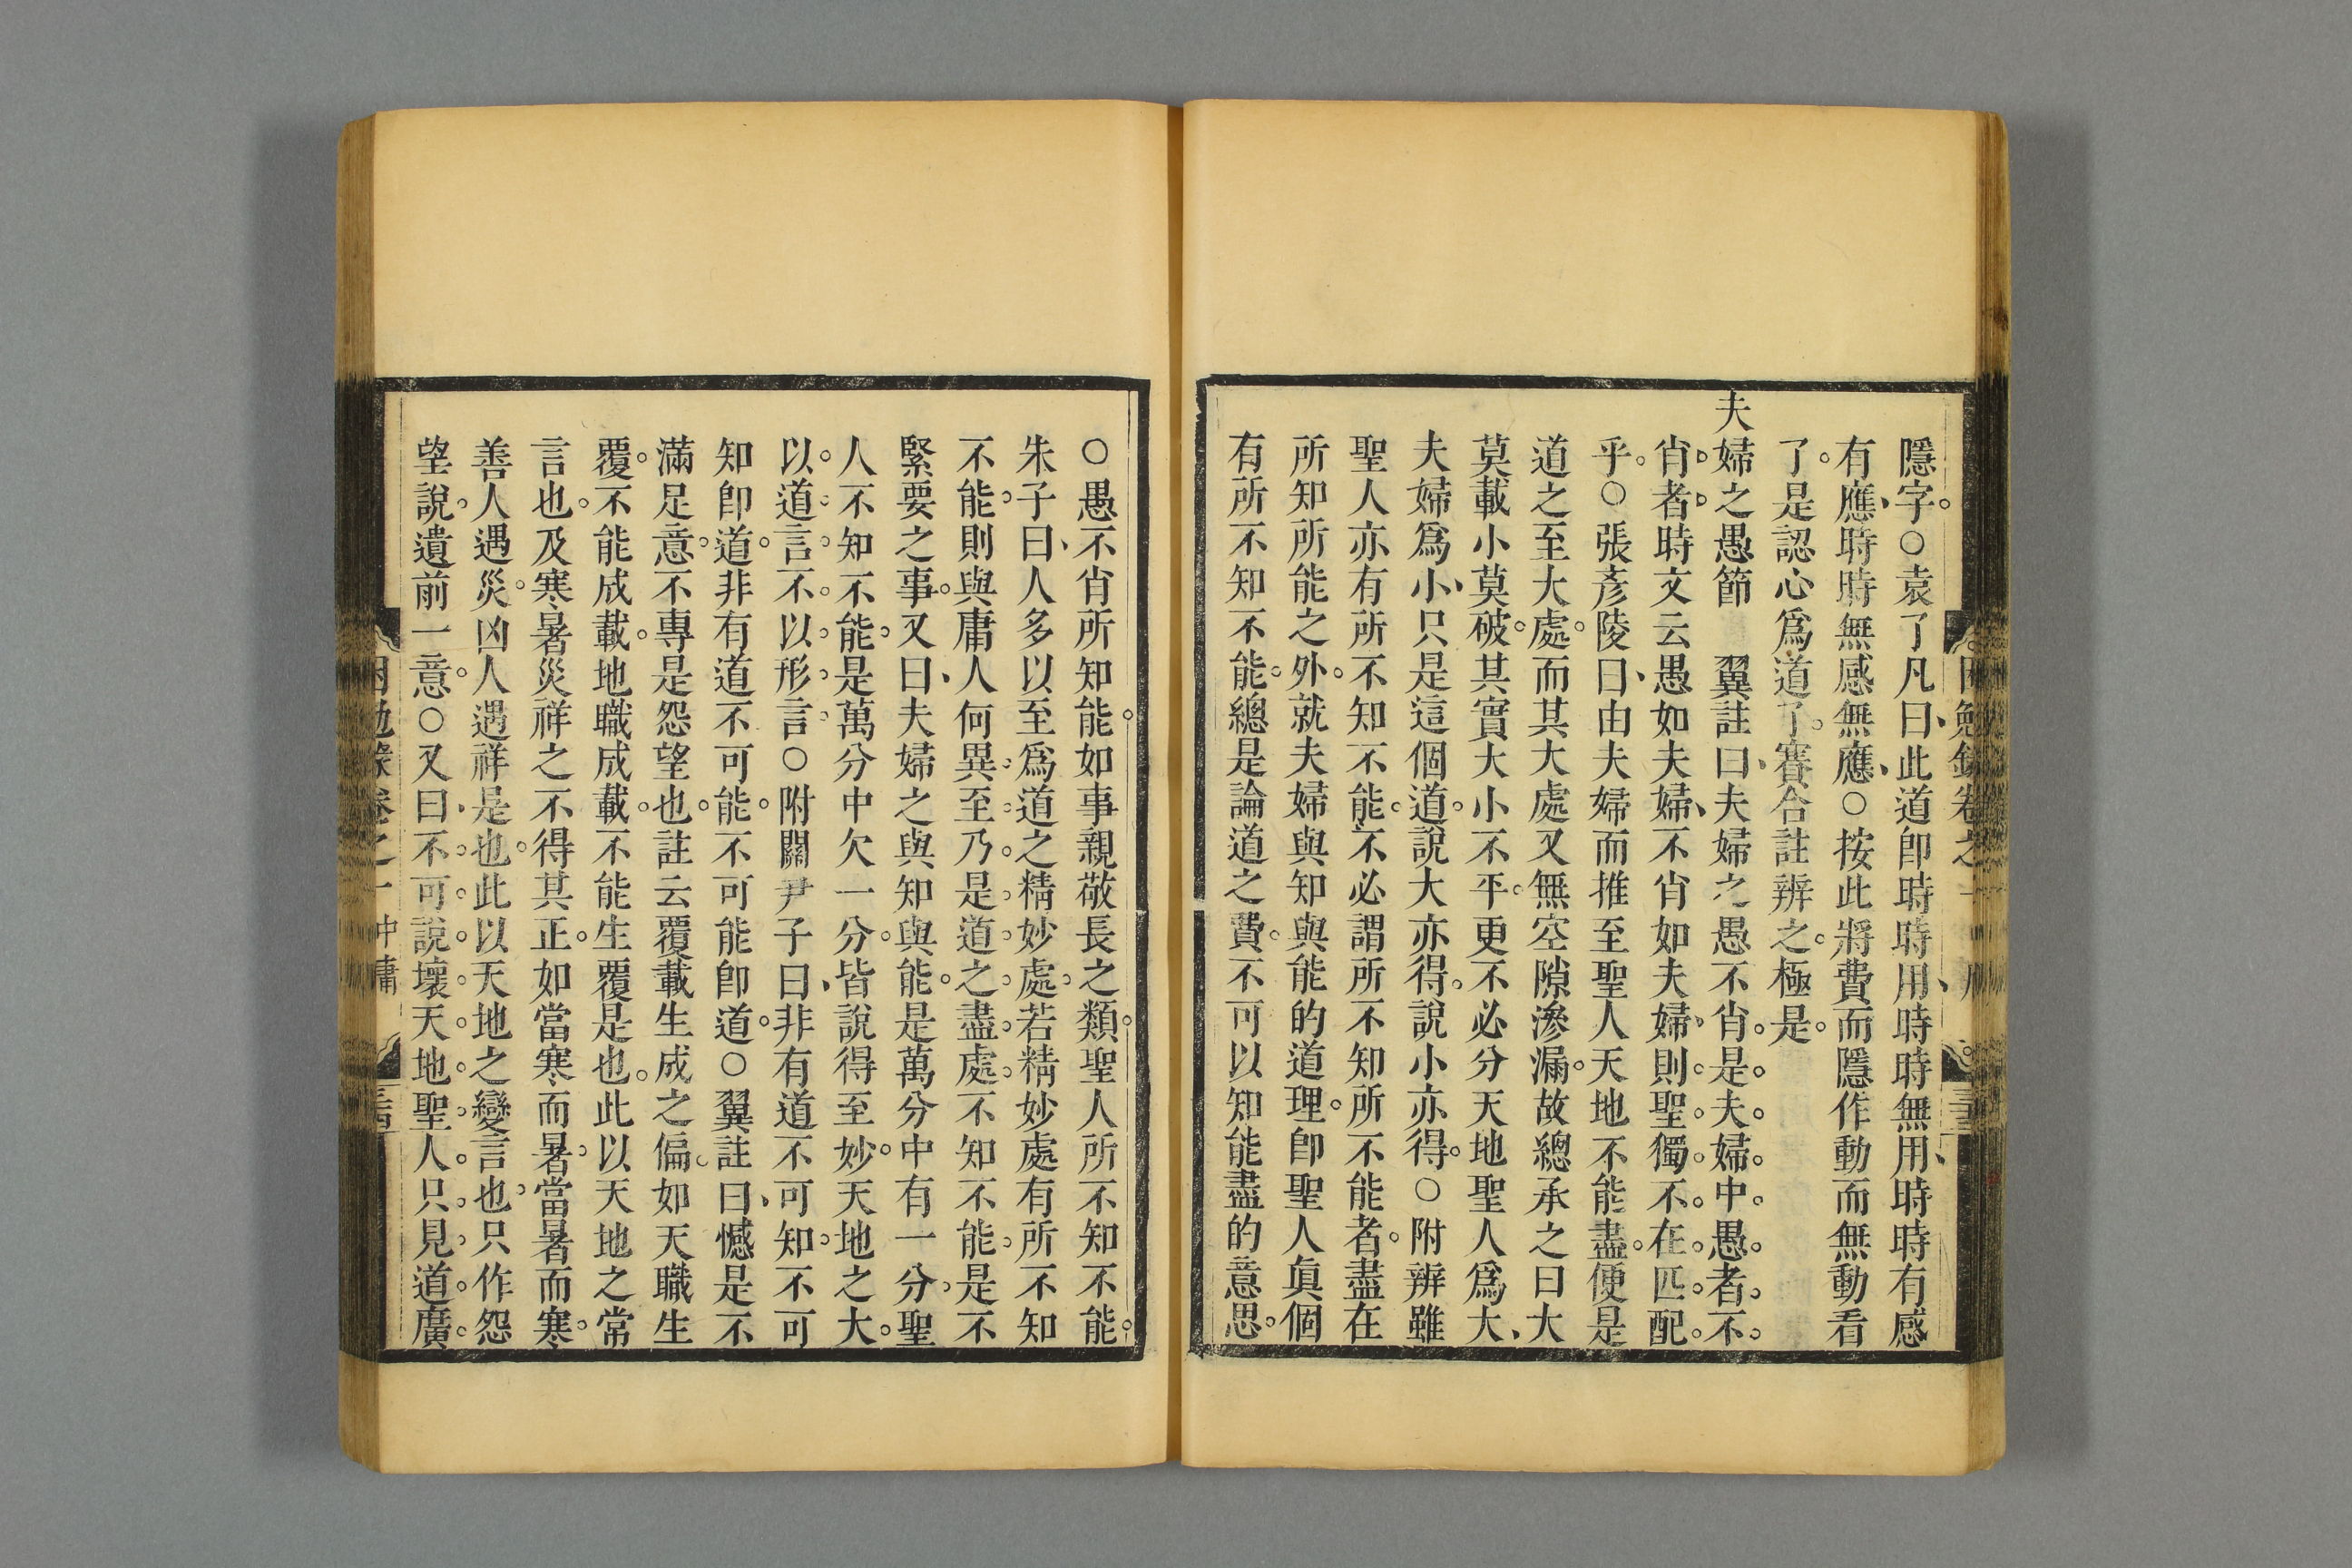 隱字○袁了凡曰此道卽時時用時時無用時時有感
有應時時無感無應○按此將費而隱作動而無動看
了是認心爲道了賽合註辨之極是
夫婦之愚節　翼註曰夫婦之愚不肖是夫婦中愚者不
肖者時文云愚如夫婦不肖如夫婦則聖獨不在匹配
乎○張彥陵曰由夫婦而推至聖人天地不能盡便是
道之至大處而其大處又無空隙滲漏故總承之曰大
莫載小莫破其實大小不平更不必分天地聖人爲大
夫婦爲小只是這個道說大亦得說小亦得○附辨雖
聖人亦有所不知不能不必謂所不知所不能者盡在
所知所能之外就夫婦與知與能的道理卽聖人眞個
有所不知不能總是論道之費不可以知能盡的意思
○愚不肖所知能如事親敬長之類聖人所不知不能
朱子曰人多以至爲道之精妙處若精妙處有所不知
不能則與庸人何異至乃是道之盡處不知不能是不
緊要之事又曰夫婦之與知與能是萬分中有一分聖
人不知不能是萬分中欠一分皆說得至妙天地之大
以道言不以形言○附關尹子曰非有道不可知不可
知卽道非有道不可能不可能卽道○翼註曰憾是不
滿足意不專是怨望也註云覆載生成之偏如天職生
覆不能成載地職成載不能生覆是也此以天地之常
言也及寒暑災祥之不得其正如當寒而暑當暑而寒
善人遇災凶人遇祥是也此以天地之變言也只作怨
望說遺前一意○又曰不可說壞天地聖人只見道廣
困勉錄卷之一　中庸　三十四